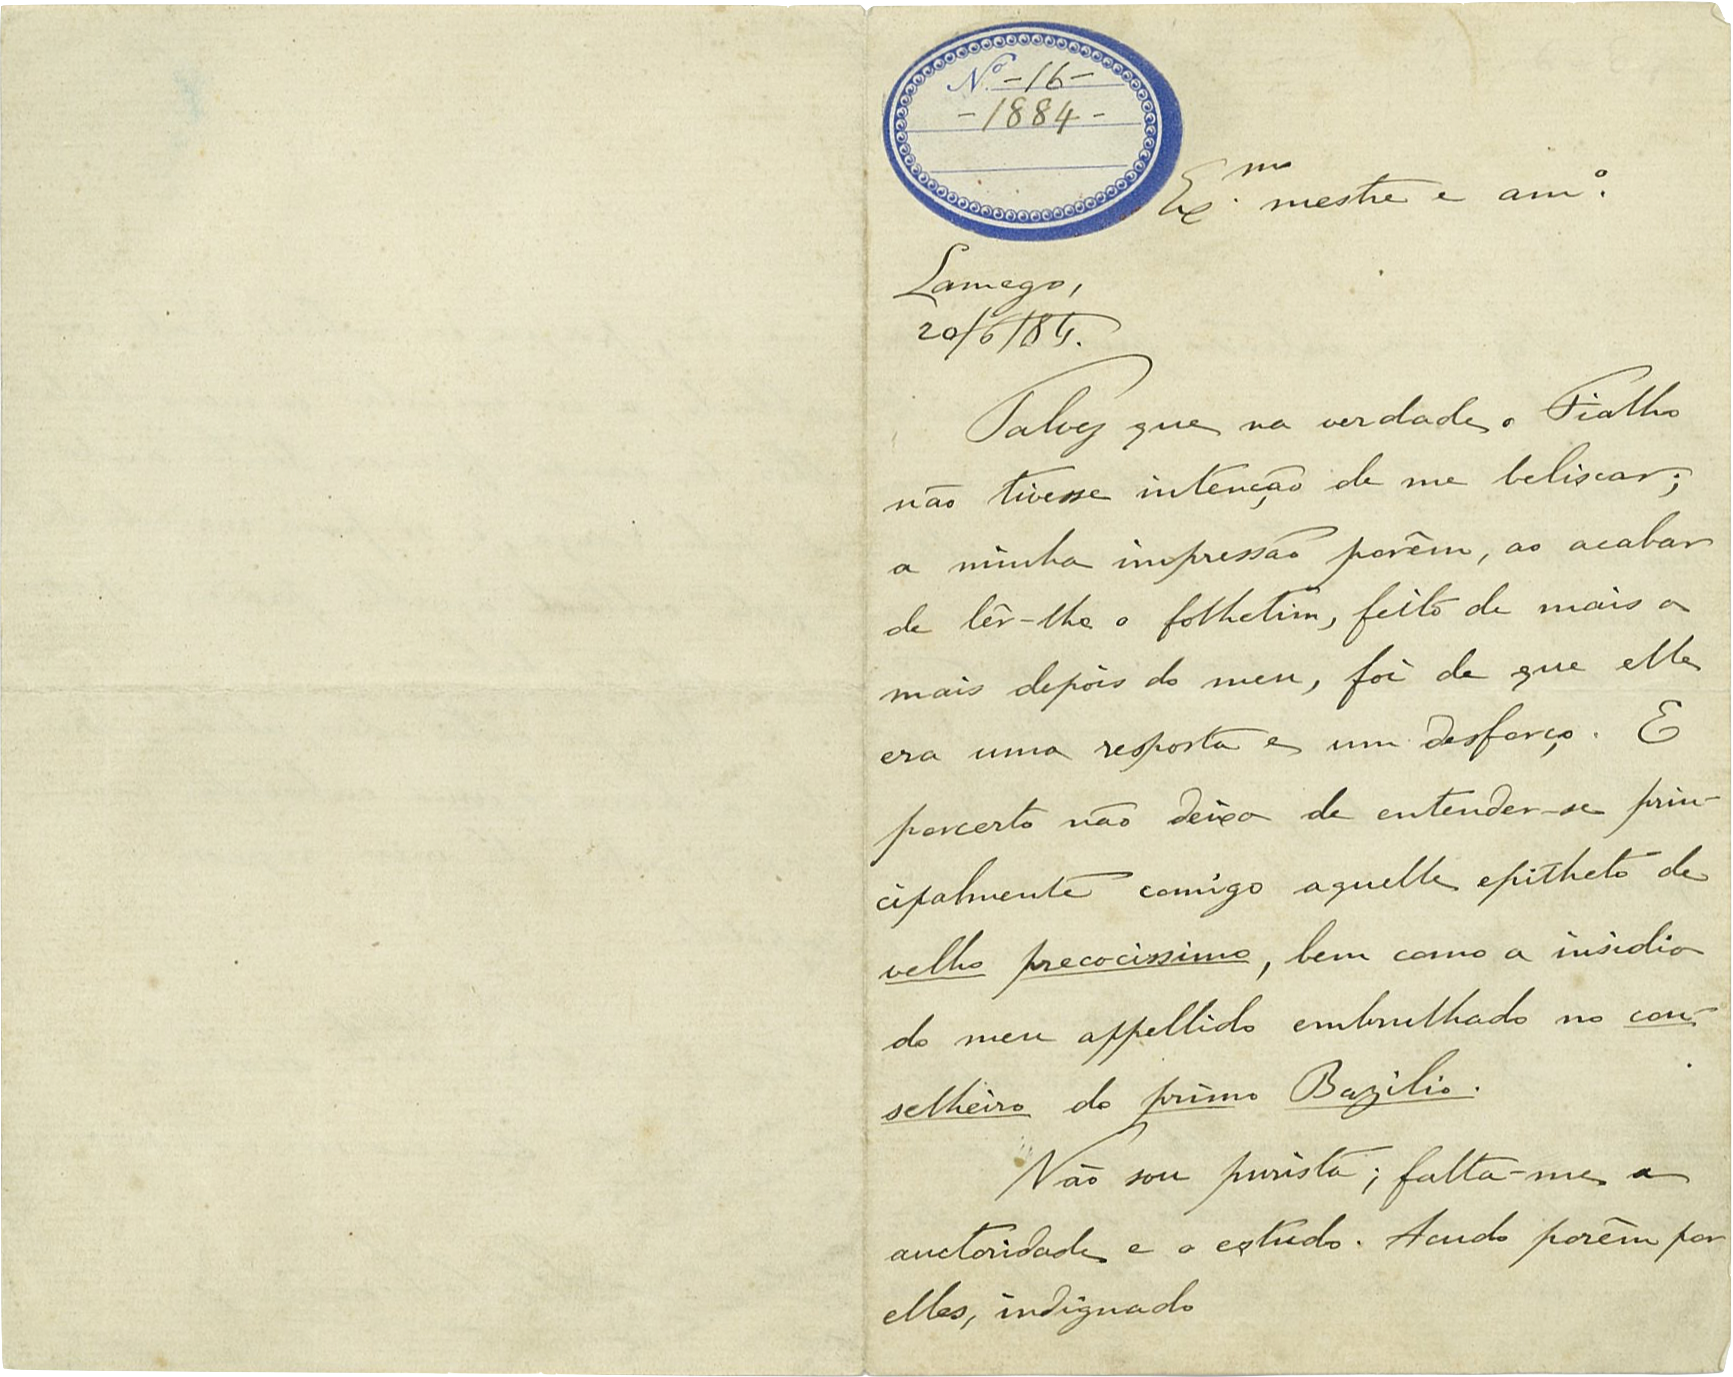 Nº -16-
-1884-
Ex.mo mestre e am.º
Lamego,
20/6/84.
Talvez que na verdade o Fialho
não tivesse intenção de me beliscar;
a minha impressão porêm, ao acabar
de lêr-lhe o folhetim, feito de mais a
mais depois do meu, foi de que elle
era uma resposta e um desforço. E
porcerto não deixa de entender-se prin-
cipalmente comigo aquelle epitheto de
velho precocissimo, bem como a insidia
do meu appellido embrulhado no con-
selheiro do primo Bazilio.
Não sou purista; falta-me a
auctoridade e o estudo. Acudo porêm por
elles, indignado